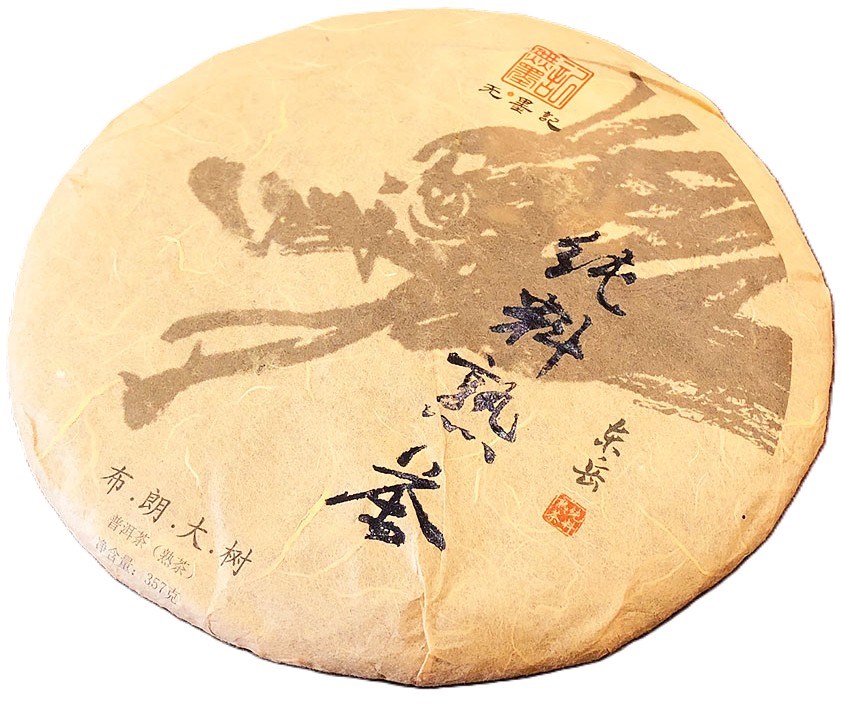 无墨記
纯料熟茶
东岳
布.朗.大.树
普洱茶（熟茶）
净含量：357克